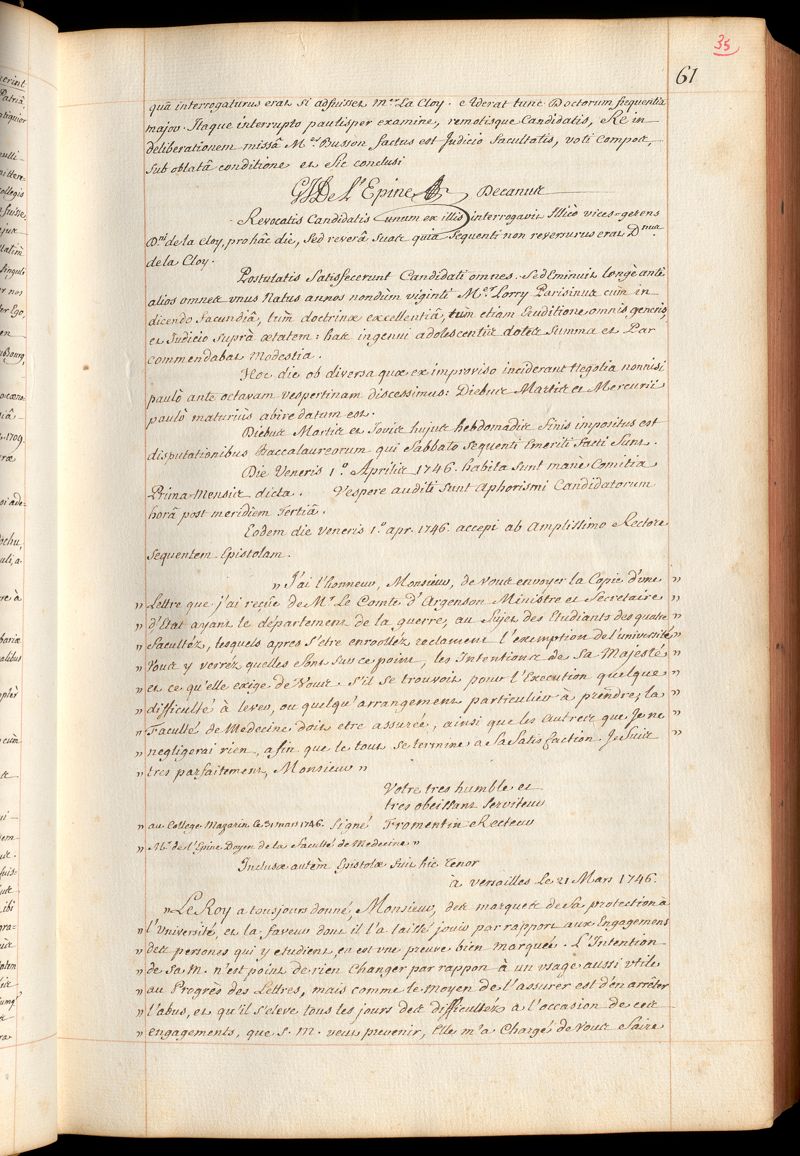 35
61
quâ interrogaturus erat si adfuisset m.er La Cloy. e Uderat tunc Doctorum frequentia
major. Itaque interrupto paulisper examine, remotisque Candidatis, Re in
deliberationem missâ M.er Busson factus est Judicio Facultatis, voti Compos,
sub oblatâ conditione et Sic conclusi
GJ De L'Epine Decanus
Revocatis Candidatis unum ex illis interrogavit Illicò vices-gerens
D.ni de la Cloy, pro hâc die, Sed reverâ Suos quia Sequenti non reversurus erat D.nus
de la Cloy.
Postulatis Satisfecerunt Candidati omnes. Sed Eminuit longè antè
alios omnes unus Natus annos nondùm viginti M.er Lorry Parisinus cùm in
dicendo Facundiâ, tùm doctrinæ excellentiâ, tùm etiam Eruditione omnis generis,
et Judicio suprà ætatem: has ingenui adolescentis dotes Summa et Par
commendabat Modestia.
Hoc die ob diversa quæ ex improviso inciderant Negotia nonnisi
paulò ante octavam vespertinam discessimus: Diebus Martis et Mercurii
paulò maturiùs abire datum est.
Diebus Martis et Jovis hujus hebdomadis Finis impositus est
disputationibus Baccalaureorum qui Sabbato Sequenti Emeriti facti Sunt.
Die Veneris 1.º Aprilis 1746. habita Sunt manè Comitia
Prima-Mensis dicta. Vespere auditi Sunt Aphorismi Candidatorum
horâ post meridiem Tertiâ.
Eodem die Veneris 1.º apr. 1746. accepi ab Amplissimo Rectore
Sequentem Epistolam.
" J'ai l'honneur, Monsieur, de vous envoyer la Copie d'une "
" Lettre que j'ai reçüe de M.r Le Comte d'Argenson Ministre et Secretaire "
" d'Etat ayant le département de la guerre, au Sujet des Etudiants des quatre "
" Facultéz, lesquels apres s'etre enrollés reclament l'exemption de l'université "
" Vous y verréz quelles Sont Sur ce point, les Intentions de Sa Majesté "
" et ce qu'elle exige de Vous. S'il se trouvoit pour l'Execution quelque "
" difficulté à lever, ou quelqu'arrangement particulier à prendre; la "
" Faculté de Medecine doit etre assurée, ainsi que les Autres que Je ne "
" negligerai rien, afin que le tout se termine a Sa Satisfaction. Je Suis "
" tres parfaitement, Monsieur "
Votre tres humble et
tres obeissant Serviteur
" au College Mazarin le 31 mars 1746. Signé Fromentin Recteur
" M.r de l'Epine Doyen de la Faculté de Medecine "
Inclusæ autèm Epistolæ Fuit hic tenor
à Versailles Le 21 Mars 1746.
" Le Roy a tousjours donné, Monsieur, des marques de Sa protection à
" l'Université, et la faveur dont il l'a laissé jouir par rapport aux Engagemens
" des persones qui y etudient, en est une preuve bien marquée. L'Intention
" de Sa M. n'est point de rien Changer par rapport à un usage aussi utile
" au Progrès des Lettres, mais comme le moyen de l'assurer est d'en arrêter
" l'abus, et qu'il s'eleve tous les jours des difficultéz a l'occasion de ces
" engagements, que S. M. veut prevenir, Elle m'a Chargé de Vous Faire